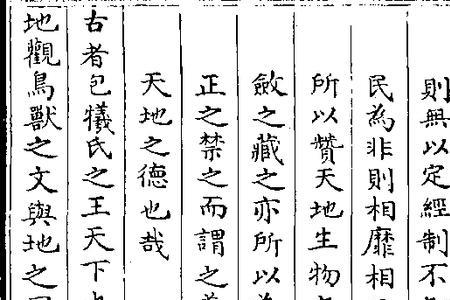 則無以定經制不
民為非則相靡相
所以贊天地生物
斂之藏之亦所以
正之禁之而謂之
天地之德也哉
古者包犧氏之王天下
地觀鳥獸之文與地之